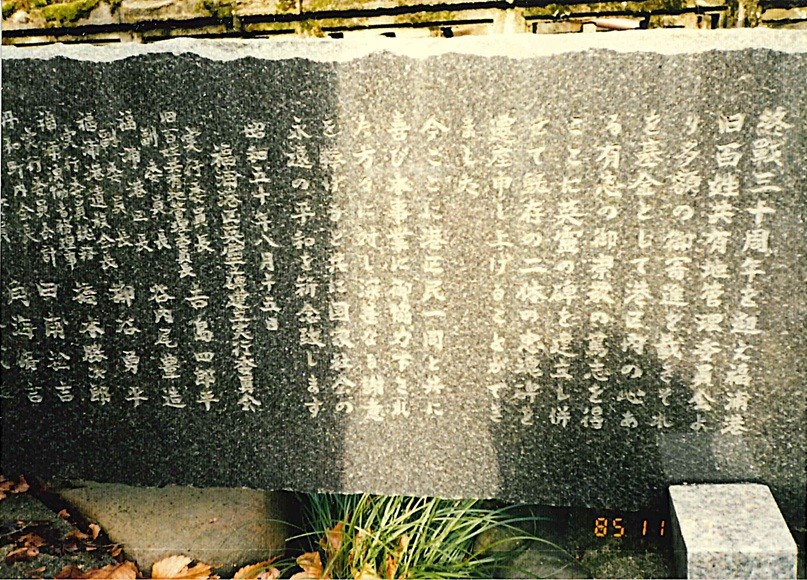 終戰三十周年を迎え福浦港
旧百姓共有地管理委員会よ
り多額の御寄進を戴きそれ
を基金として港区内の心あ
る有志の御の篤志を得
ここに英霊の碑を建立し併
せて既存の二條の忠魂碑を
遷座申し上げることができ
ました
今ここに港区民一同と共に
喜び本事業に御協力下され
た方々に対し深甚なる謝意
を捧げると共に国家社会の
永遠の平和を祈念致します
昭和五十年八月十五日
福浦港区英霊之塔建立実行委員会
実行委員長 吉島四郎平
旧百姓共有地管理委員長
副委員長 谷内尾豊造
福浦港区長
副委員長 柳谷勇平
福浦港遺族会長
実行委員総務 橋本勝太郎
実行委員会計 田南松吉
85 11